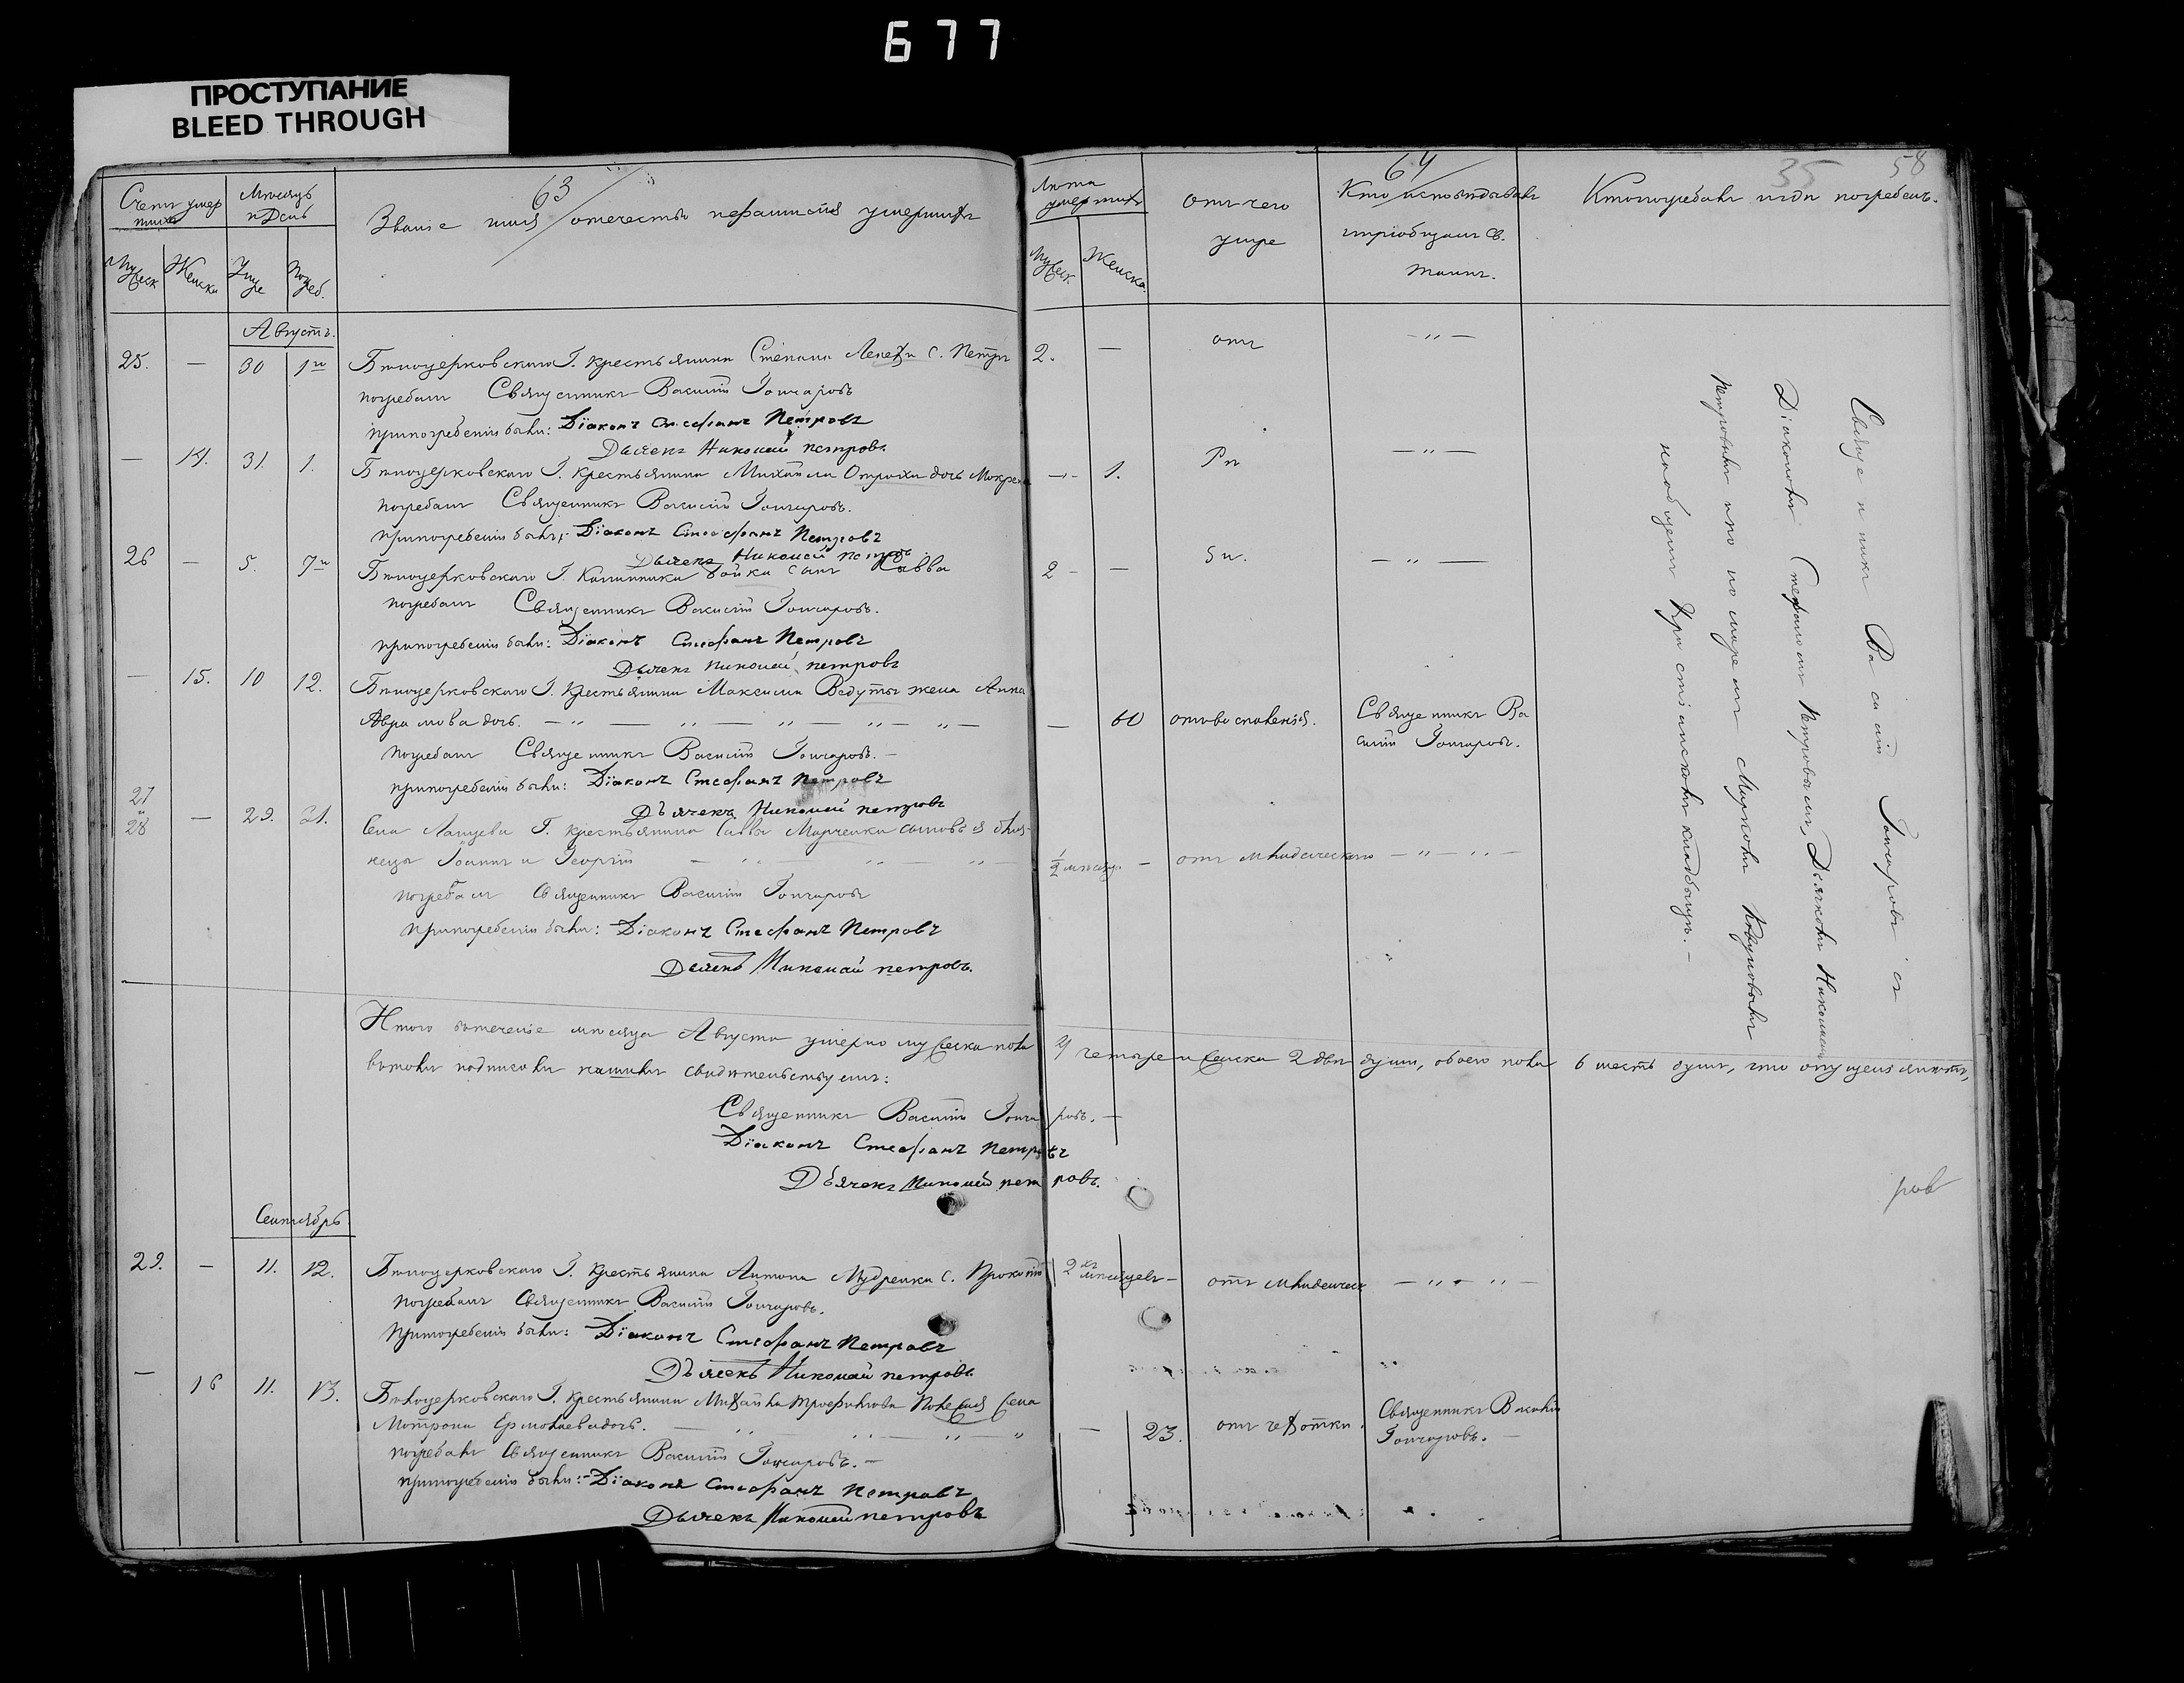 677
ПРОСТУПАНИЕ
BLEED THROUGH
63
64
35
58
Счетъ умер
шихъ
Мѣсяцъ
и День
Званіе имя отечество и фамилія умершихъ
Лѣта
умершихъ
отъ чего
умре
Кто исповѣдывалъ
и пріобщалъ св.
таинъ.
Кто погребалъ и гдѣ погребенъ.
Мужеск
Женска
Умре
Погреб.
Мужеск.
Женска.
Августъ.
25. — 30 1го Бѣлоцерковского Г. крестьянина Степана с. Петръ 2. — отъ — " —
погребалъ Священникъ Василій Гончаровъ
при погребеніи были: Діаконъ Стефанъ Петровъ
Дьячекъ Николай петровъ.
— 14. 31. 1. Бѣлоцерковскаго Г. крестьянина Михаила Отрохи дочь — 1. — " —
погребалъ Священникъ Василій Гончаровъ.
при погребеніи были: Діаконъ Стефанъ Петровъ
Дьячекъ Николай петровъ
26 — 5. 7го Бѣлоцерковскаго Г. Калинника Бойка сынъ Савва 2 — — — " —
погребалъ Священникъ Василій Гончаровъ.
при погребеніи были: Діаконъ Стефанъ Петровъ
Дьячекъ Николай петровъ
— 15. 10 12. Бѣлоцерковскаго Г. Крестьянина Максима жена Анна
Аврамова дочь. — " — " — " — " — " — — 60 Священникъ Ва
силій Гончаровъ.
погребалъ Священникъ Василій Гончаровъ. —
при погребеніи были: Діаконъ Стефанъ Петровъ
Дьячекъ Николай петровъ
27
и
28 — 29. 31. Села Г. крестьянина Саввы Марченка сыновья близ-
нецы Іоаннъ и Георгій — " — " — " — 1/2 мѣсяц. — отъ младенческаго — " — " —
погребалъ Священникъ Василій Гончаровъ
при погребеніи были: Діаконъ Стефанъ Петровъ
Дьячекъ Николай петровъ.
Священникъ Василій Гончаровъ съ
Діакономъ Стефаномъ Петровымъ, Дьячкомъ Николаемъ
Петровымъ
на общемъ Христіанскомъ кладбищѣ. —
Итого въ теченіе мѣсяца Августа умерло мужеска пола 4 четыре и женска 2 двѣ души, обоего пола 6 шесть душъ, что
въ томъ подписомъ нашимъ свидѣтельствуемъ:
Священникъ Василій Гончаровъ. —
Діаконъ Стефанъ Петровъ
Дьячекъ Николай петровъ.
ров
Сентябрь.
29. — 11. 12. Бѣлоцерковскаго Г. крестьянина Антона Мудренка с. Прокопій 2хъ мѣсяцевъ — отъ младенческ — " — " —
погребалъ Священникъ Василій Гончаровъ.
При погребеніи были: Діаконъ Стефанъ Петровъ
Дьячекъ Николай петровъ.
— 16 11. 13. Бѣлоцерковскаго Г. крестьянина Михайла Трофимова жена
Мотрона дочь. — " — " — " — " — 23. отъ чахотки. Священникъ Василій
Гончаровъ. —
погребалъ Священникъ Василій Гончаровъ. —
при погребеніи были: — Діаконъ Стефанъ Петровъ
Дьячекъ Николай петровъ